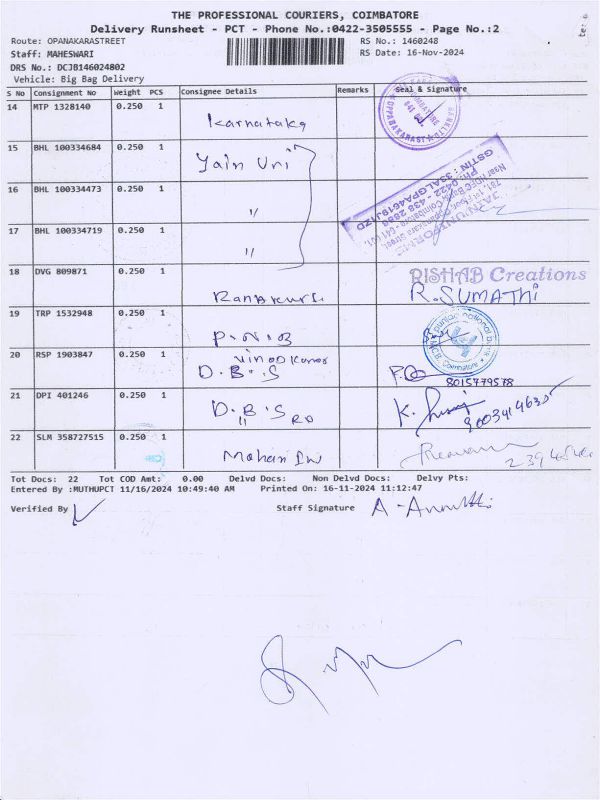 THE PROFESSIONAL COURIERS, COIMBATORE
Delivery Runsheet - PCT - Phone No.:0422-3505555 - Page No.:2
Route: OPANAKARASTREET RS No.: 1460248
Staff: MAHESWARI RS Date: 16-Nov-2024
DRS No.: DCJB146024802
Vehicle: Big Bag Delivery
S No Consignment No Weight PCS Consignee Details Remarks Seal & Signature
14 MTP 1328140 0.250 1 Karnataka
15 BHL 100334684 0.250 1 Jain Uni
16 BHL 100334473 0.250 1 "
JAIN UNIFORMS
781, 1st Floor, Oppanakara Street,
Near HDFC Bank, Coimbatore - 641 001.
Ph: 0422 - 438 2888
GSTIN : 33ALGPA4619J1ZD
17 BHL 100334719 0.250 1 "
18 DVG 809871 0.250 1
RISHAB Creations
R. SUMATHI
19 TRP 1532948 0.250 1 P.N.B
punjab national bank
Coimbatore
20 RSP 1903847 0.250 1 Vinod Kumar
D.B.S
8015779578
21 DPI 401246 0.250 1 D.B.S
"
22 SLM 358727515 0.250 1 Mohan
Tot Docs: 22 Tot COD Amt: 0.00 Delvd Docs: Non Delvd Docs: Delvy Pts:
Entered By :MUTHUPCT 11/16/2024 10:49:40 AM Printed On: 16-11-2024 11:12:47
Verified By Staff Signature